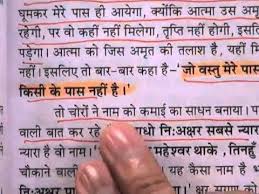 घूमकर मेरे पास ही आयेगा, क्योंकि आत्मा उस अमृ
रहेगी, पर वो कहीं नहीं मिलेगा, तृप्ति नहीं होगी, इसलि
पड़ेगा। आत्मा को जिस अमृत की तलाश है, यहीं मि
नहीं। इसलिए तो बार-बार कहा है-'जो वस्तु मेरे पास
किसी के पास नहीं है।'
तो चोरों ने नाम को कमाई का साधन बनाया। प
वाली बात कर रहे
धो निःअक्षर सबसे न्यारा
न्यारा है वो नाम।
महेश्वर थाके, तिनहुँ
चौकाने वाली
यह कैसा नाम है भ